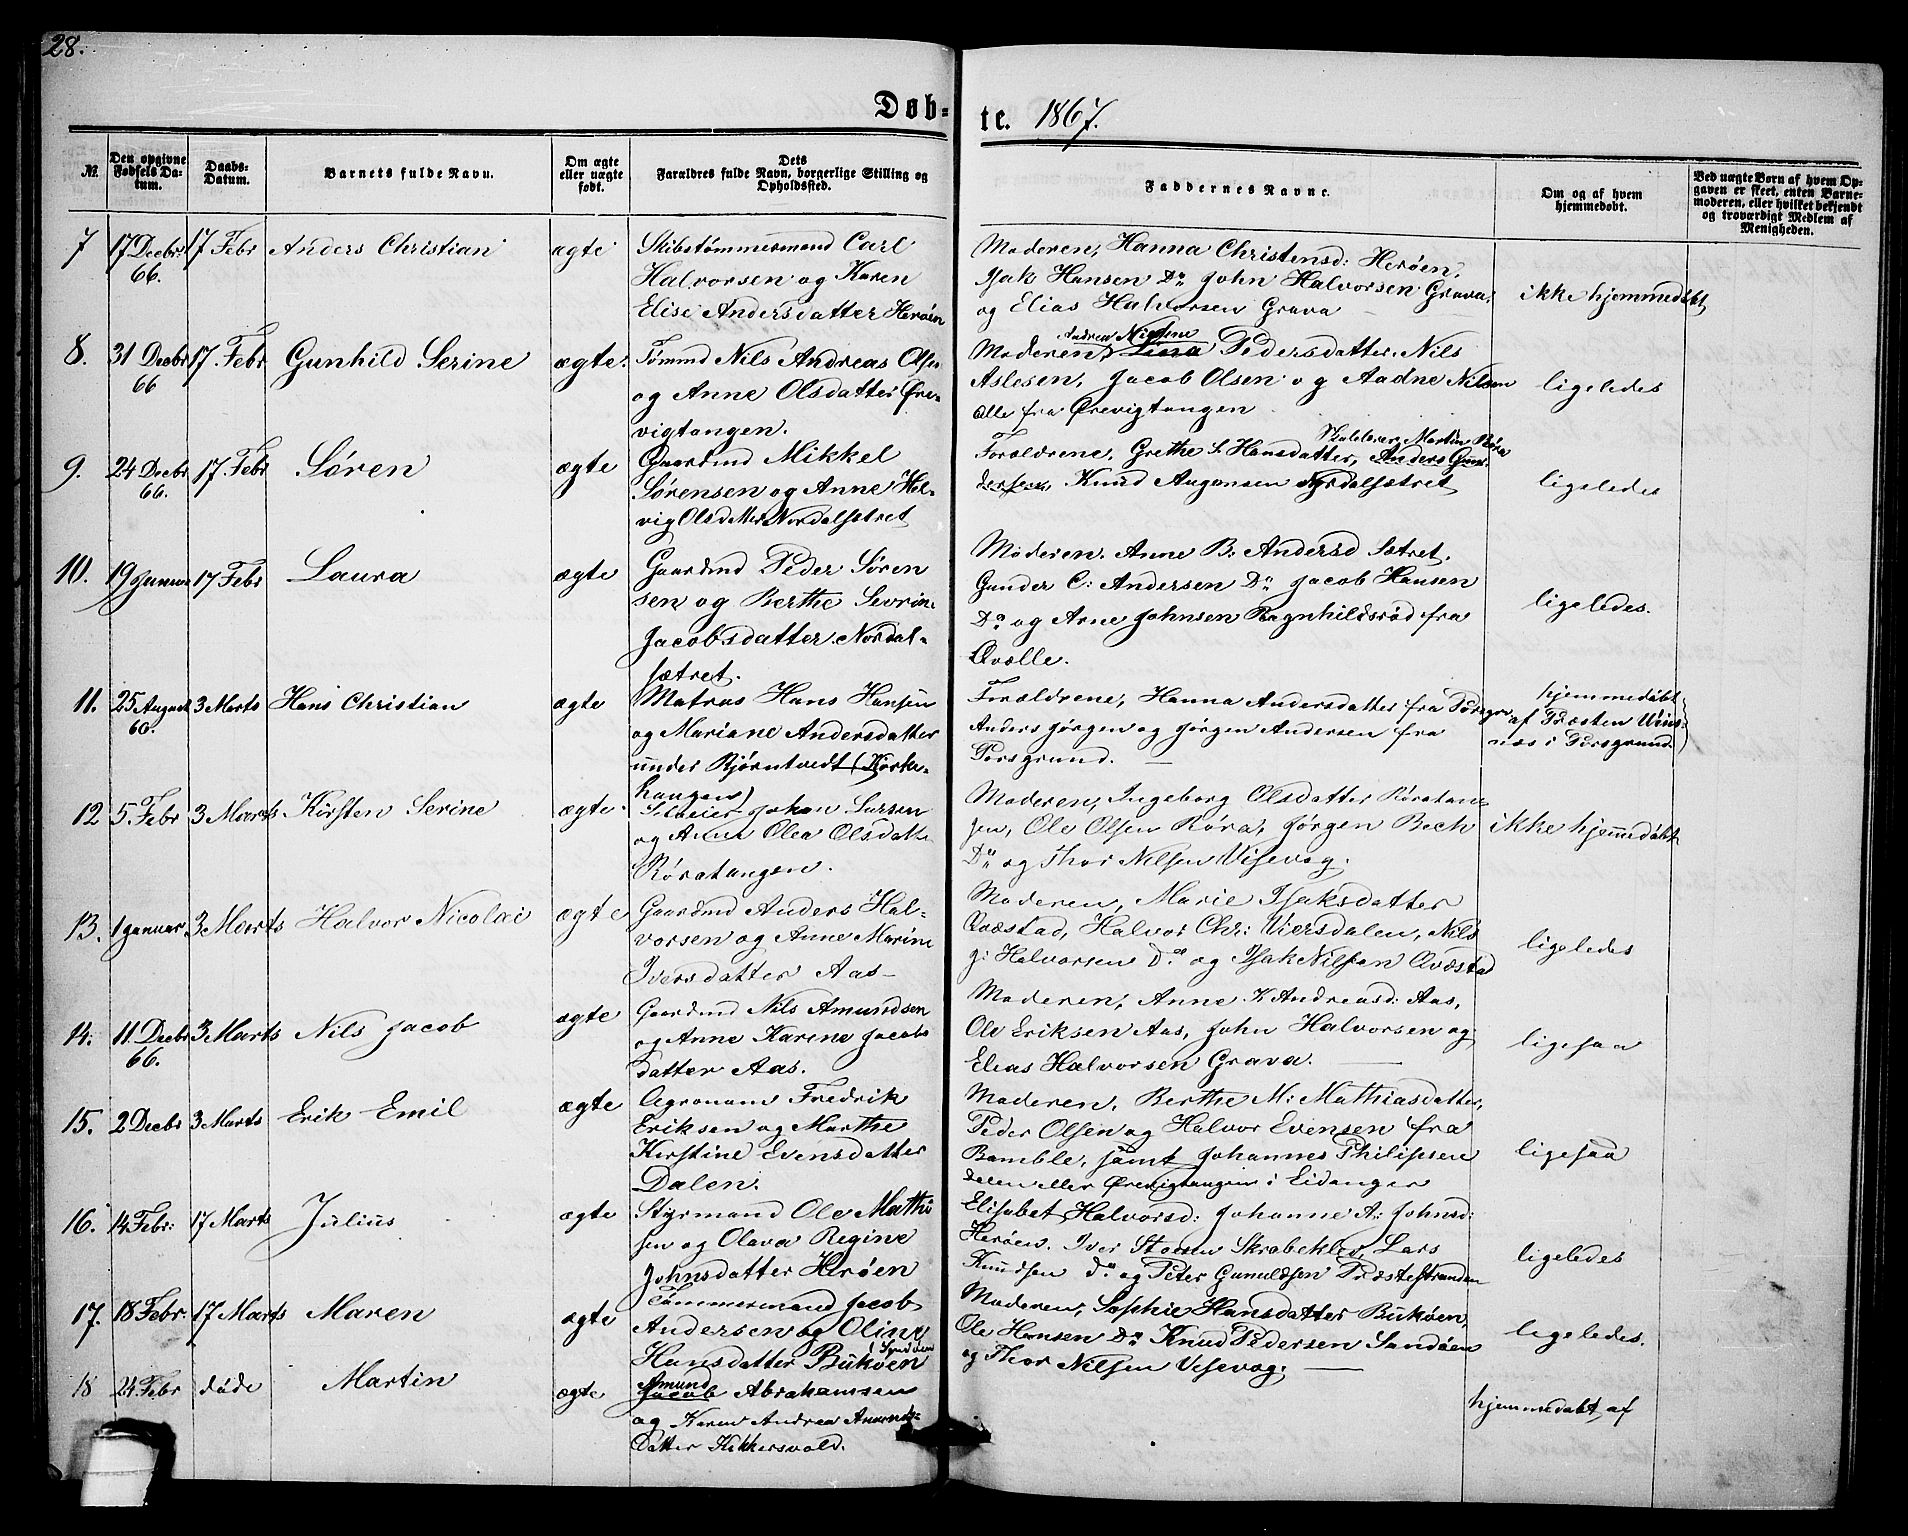 28.
Døb-
te. 1867.
№
Den opgivne Fødsels Da-tum.
Daabs-Datum.
Barnets fulde Navn.
Om ægte eller uægte født.
Dets Forældres fulde Navn, borgerlige Stilling og Opholdssted.
Faddernes Navne.
Om og af hvem hjemmedøbt.
Ved uægte Børn af hvem Op-gaven er skeet, enten Barne-moderen, eller hvilket bekjendt og troværdigt Medlem af Menigheden.
7 17 Decbr: 66. 17 Febr Anders Christian ægte
Skibstømmermand Carl
Halvorsen og Karen
Elise Andersdatter Herøen
Moderen, Hanna Christensd: Herøen,
Isak Hansen Do John Halvorsen Grava,
og Elias Halvorsen Grava
ikke hjemmedøbt,
8. 31 Decbr 66 17. Febr Gunhild Serine ægte.
Tømmd Nils Andreas Olsen
og Anne Olsdatter Øre-
vigtangen.
Andrea Nielsine
Moderen, Lina Pedersdatter, Nils
Aslesen, Jacob Olsen og Aadne Nilsen
alle fra Ørevigtangen
ligeledes
9. 24 Decbr 66. 17. Febr Søren ægte
Gaardmd Mikkel
Sørensen og Anne Hel-
vig Olsdatter Nordalsætret
Skolelærer Martin Røra
Forældrene, Grethe S. Hansdatter, Anders Gun-
dersen, Knud Augensen Nordalsætret
ligeledes
10. 19 Januar 17 Febr Laura ægte
Gaardmd Peder Søren
sen og Berthe Sevrine
Jacobsdatter Nordal-
sætret.
Moderen. Anne B. Andersd Sætret.
Gunder C: Andersen Do Jacob Hansen
Do og Arne Johnsen Ragnhildsrød fra
Qvelle.
ligeledes.
11. 25 August 60. 3 Marts Hans Christian ægte
Matros Hans Hansen
og Mariane Andersdatter
under Bjørntvedt (Kørke-
haugen)
Forældrene, Hanna Andersdatter fra Porsgru
Anders Jørgen og Jørgen Andersen fra
Porsgrund.
hjemmedøbt
af Præsten Wins-
næs i Porsgrund.
12 5. Febr 3 Marts Kirsten Serine ægte.
Selveier Johan Larsen
og Anne Olea Olsdatt
Røratangen.
Moderen, Ingeborg Olsdatter Røratan-
gen, Ole Olsen Røra, Jørgen Bech
Do og Thor Nilsen Visevog.
ikke hjemmedøbt
13. 1 Januar 3 Marts Halvor Nicolai ægte
Gaardmd Anders Hal-
vorsen og Anne Marine
Iversdatter Aas
Moderen, Marie Isaksdatter
Qvæstad, Halvor Chr: Versdalen, Nils
J: Halvorsen Do og Isak Nilsen Qvæstad
ligeledes
14. 11 Decbr 66. 3 Marts Nils Jacob ægte
Gaardmd Nils Amundsen
og Anne Karine Jacobs
datter Aas.
Moderen, Anne K Andreasd: Aas,
Ole Eriksen Aas, John Halvorsen og
Elias Halvorsen Grava.
ligesaa
15. 2 Decbr 3 Marts Erik Emil ægte
Agronom Fredrik
Eriksen og Marthe
Kirstine Evensdatter
Dalen.
Moderen, Berthe M: Mathiasdatter,
Peder Olsen og Halvor Evensen fra
Bamble, samt Johannes Philipsen
Dalen eller Ørevigtangen i Eidanger
ligesaa
16. 14 Febr: 17 Marts Julius ægte
Styrmand Ole Mathi
sen og Olava Regine
Johnsdatter Herøen
Elisabet Halvorsd: Johanne A: Johnsd:
Herøen. Iver Skrabeklev, Lars
Knudsen Do og Peter Gunuldsen Præstestranden
ligeledes
17. 18 Febr: 17 Marts Maren ægte
Tømmermand Jacob
Andersen og Oline
Hansdatter Bukøen
Moderen, Sophie Hansdatter Bukøen,
Ole Hansen Do Knud Pedersen Sandøen
og Thor Nilsen Visevog.
ligeledes.
18 24 Febr døde Martin ægte
Amund
Jacob Abrahamsen
og Karen Andrea Amunds-
Datter Kikkersvold.
hjemmedøbt, af